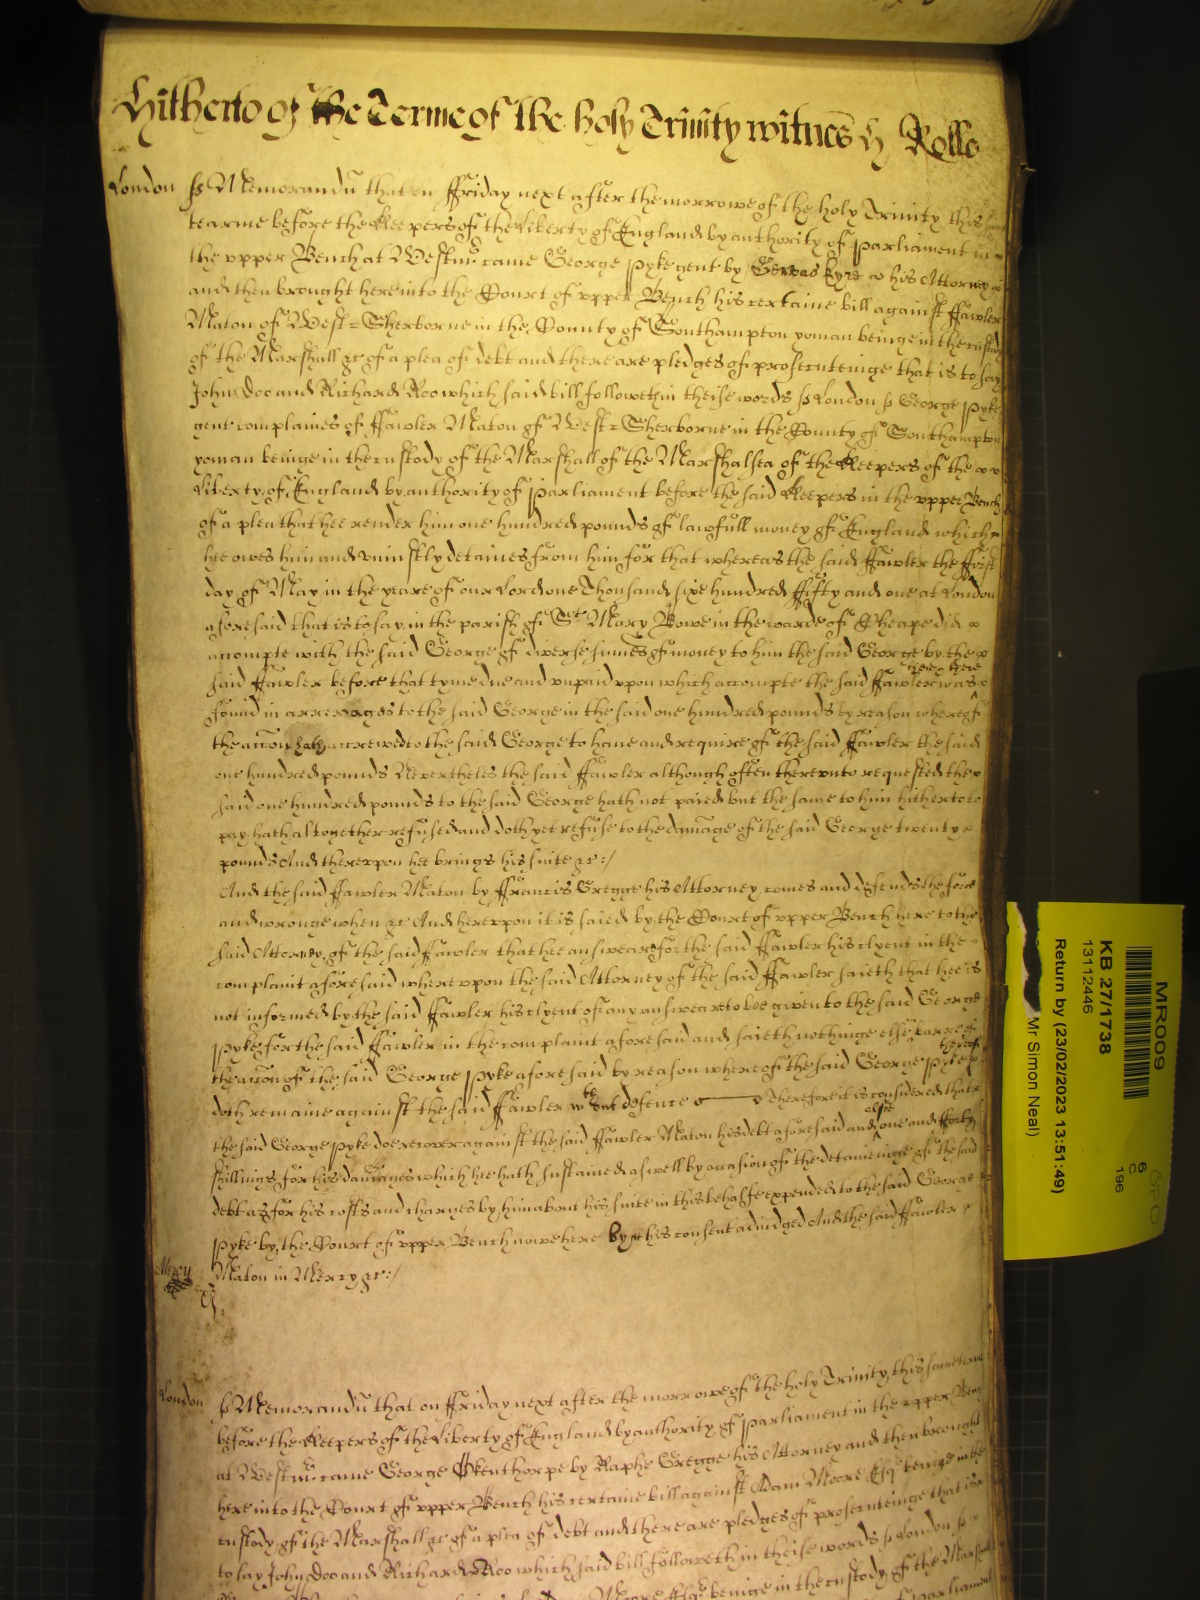 Hitherto of the Terme of the holy Trinity witnes H Rolle
London ss Memorandu that on ffriday next after the morrowe of the holy Trinity this same
tearme before the Keepers of the Liberty of England by authority of parliament in
the upper Bench at Westmr came George Pyke gent by Gervas his Attorney
and then brought here into the Court of upper Bench his certaine bill against ffawler
Maton of West=Sherborne in the County of Southampton yoman beinge in the custody
of the Marshall &c of a plea of debt and there are pledges of prosecuteinge that is to say
John Doo and Richard Roo which said bill followeth in theise words ss London ss George Pyke
gent complaines of ffawler Maton of West=Sherborne in the County of Southampton
yoman beinge in the custody of the Marshall of the Marshalsea of the Keepers of the
Liberty of England by authority of parliament before the said Keepers in the upper Bench
of a plea that hee render him one hundred pounds of lawfull money of England which
hee owes him and uniustly detaines from him for that whereas the said ffawler the ffirst
day of May in the yeare of our Lord one Thousand sixe hundred ffifty and one at London
aforesaid that is to say in the parish of St Mary Bowe in the warde of Cheape did
accompte with the said George of diverse summes of money to him the said George by the
said ffawler before that tyme due and unpaid upon which accompte the said ffawler was then & there
found in arrerages to the said George in the said one hundred pounds by reason whereof
the accon hath accrewed to the said George to have and require of the said ffawler the said
one hundred pounds Nevertheles the said ffawler although often thereunto requested the
said one hundred pounds to the said George hath not paied but the same to him hitherto to
pay hath altogether refused and doth yet refuse to the damage of the said George twenty
pounds And thereupon hee brings his suite &c :/
And the said ffawler Maton by ffrancis Gregge his Attorney comes and defends the force
and wronge when &c And hereupon it is saied by the Court of upper Bench here to the
said Attorney of the said ffawler that hee answeare for the said ffawler his clyent in the
complaint aforesaid whereupon the said Attorney of the said ffawler saieth that hee is
not informed by the said ffawler his clyent of any answeare to bee given to the said George
Pyke for the said ffawler in the complaint aforesaid and saieth nothinge else in barre of
the accon of the said George Pyke aforesaid by reason whereof the said George Pyke hereof
doth remaine against the said ffawler wthout defence Therefore it is considered that
the said George Pyke doe recover against the said ffawler Maton his debt aforesaid and alsoe one and fforty
shillings for his damages which hee hath sustained aswell by occasion of the deteineinge of the said
debt as for his costs and charges by him about his suite in this behalfe expended to the said George
Pyke by the Court of upper Bench nowe here by his consent adiudged And the said ffawler
Mercy Maton in Mercy &c :/
London ss Memorandu that on ffriday next after the morrowe of the holy Trinity this same terme
before the Keepers of the Liberty of England by authority of parliament in the upper Bench
at Westmr came George Skenthorpe by Raphe Gregge his Attorney and then brought
here into the Court of upper Bench his certaine bill against Adam Moore Esqr beinge in the
custody of the Marshall &c of a plea of debt and there are pledges of prosecuteinge that is
to say John Doo and Richard Roo which said bill followeth in theise words ss London ss
Moore Esqr beinge in the custody of the Marshall
parliament
MR009
6
C
196
KB 27/1738
13112446
Return by (23/02/2023 13:51:49)
Mr Simon Neal)